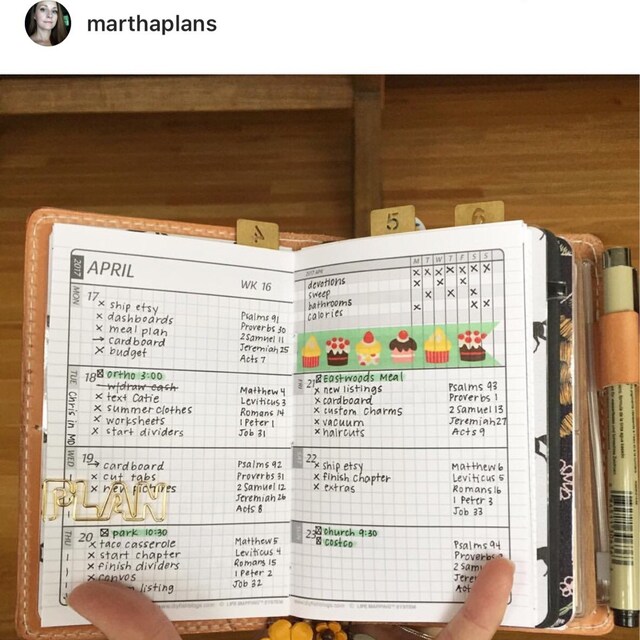 marthaplans
4
5
6
2017
APRIL
WK 16
MON
17
x ship etsy
x dashboards
x meal plan
→ cardboard
x budget
Psalms 91
Proverbs 30
2 Samuel 11
Jeremiah 25
Acts 7
TUE
Chris in MO
18
ortho 3:00
w/draw cash
x text Catie
x summer clothes
x worksheets
x start dividers
Matthew 4
Leviticus 3
Romans 14
1 Peter 1
Job 31
WED
19
→ cardboard
x cut tabs
x new pictures
Psalms 92
Proverbs 31
2 Samuel 12
Jeremiah 26
Acts 8
PLAN
THU
20
park 10:30
x taco casserole
x start chapter
x finish dividers
x canvas
listing
Matthew 5
Leviticus 4
Romans 15
1 Peter 2
Job 32
M T W T F S S
devotions x x x x x x x
sweep x x
bathrooms x x
calories x x
FRI
21
Eastwoods Meal
x new listings
x cardboard
x custom charms
x vacuum
x haircuts
Psalms 93
Proverbs 1
2 Samuel 13
Jeremiah 27
Acts 9
22
x ship etsy
x finish chapter
x extras
Matthew 6
Leviticus 5
Romans 16
1 Peter 3
Job 33
23
church 9:30
costco
Psalms 94
Proverbs
2 Sam
Jere
Act